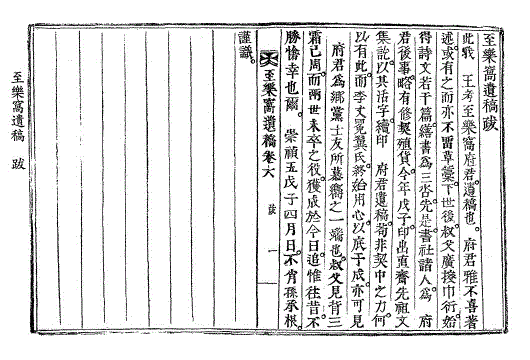 至樂窩遺稿跋
此我　王考至樂窩府君遺稿也。府君雅不喜著
述。或有之而亦不留草藁。下世後。叔父廣搜巾衍。始
得詩文若干篇。繕書為三呇。先是。書社諸人為　府
君後事。略有修契殖貨。今年戊子。印出直齋先祖文
集。訖以其活字。續印　府君遺稿。苟非契中之力。何
以有此。而李丈冕翼氏。終始用心。以底于成。亦可見
府君為鄉黨士友所慕嚮之一端也。叔父見背三
霜已周。而兩世未卒之役。獲成於今日。追惟往昔。不
勝愴幸也爾。崇禎五戊子四月日。不肖孫承根。
謹識。
至樂窩遺稿卷六
跋
一
至樂窩遺稿　跋